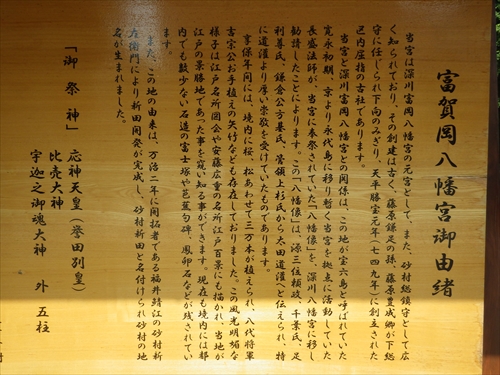 富賀岡八幡宮御由緒
当宮は深川富岡八幡宮の元宮として、また、砂村総鎮守として広
く知られており、その創建は古く、藤原鎌足の孫、藤原豊成卿が下総
守に任じられ下向のみぎり、天平勝宝元年(七四九年)に創立された
邑内屈指の古社であります。
当宮と深川富岡八幡宮との関係は、この地が宝六島と呼ばれていた
寛永初期、京より永代島に移り暫く当宮を拠点に活動していた
長盛法師が、当宮に奉祭されていた「八幡像」を、深川八幡宮に移し
勧請したことによります。この「八幡像」は、源三位頼政、千葉氏、足
利尊氏、鎌倉公方基氏、管領上杉氏から太田道灌へと伝えられ、特
に道灌より厚い崇敬を受けていたものであります。
享保年間には、境内に桜、松あわせて三万本が植えられ、八代将軍
吉宗公お手植えの矢竹なども存在しておりました。この風光明媚な
様子は江戸名所図会や安藤広重の名所江戸百景にも描かれ、当地が
江戸の景勝地であった事を窺い知る事ができます。現在も境内には都
内でも数少ない石造の富士塚や芭蕉句碑、鳳卵石などが残されてい
ます。
また、この地の由来は、万治二年に開拓者である福井靖江の砂村新
左衛門により新田開発が完成し、砂村新田と名付けられ砂村の地
名が生まれました。
「御祭神」 応神天皇(誉田別皇)
比売大神
宇迦之御魂大神 外 五柱